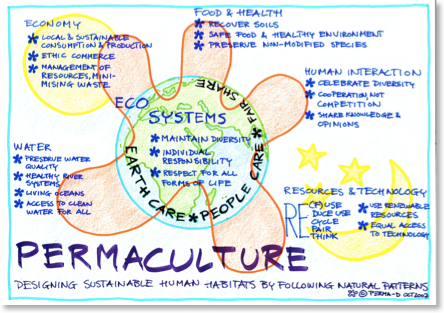 ECONOMY
* LOCAL & SUSTAINABLE
CONSUMPTION & PRODUCTION
* ETHIC COMMERCE
* MANAGEMENT OF
RESOURCES, MINI-
MISING WASTE
FOOD & HEALTH
* RECOVER SOILS
* SAFE FOOD & HEALTHY ENVIRONMENT
* PRESERVE NON-MODIFIED SPECIES
HUMAN INTERACTION
* CELEBRATE DIVERSITY
* COOPERATION, NOT
COMPETITION
* SHARE KNOWLEDGE &
OPINIONS
ECO
SYSTEMS
* MAINTAIN DIVERSITY
* INDIVIDUAL
RESPONSIBILITY
* RESPECT FOR ALL
FORMS OF LIFE
EARTH CARE * PEOPLE CARE * FAIR SHARE
WATER
* PRESERVE WATER
QUALITY
* HEALTHY RIVER
SYSTEMS
* LIVING OCEANS
* ACCESS TO CLEAN
WATER FOR ALL
RESOURCES & TECHNOLOGY
RE
(F)USE
DUCE USE
CYCLE
PAIR
THINK
* USE RENEWABLE
RESOURCES
* EQUAL ACCESS
TO TECHNOLOGY
PERMACULTURE
DESIGNING SUSTAINABLE HUMAN HABITATS BY FOLLOWING NATURAL PATTERNS
© PERMA-D OCT 2007